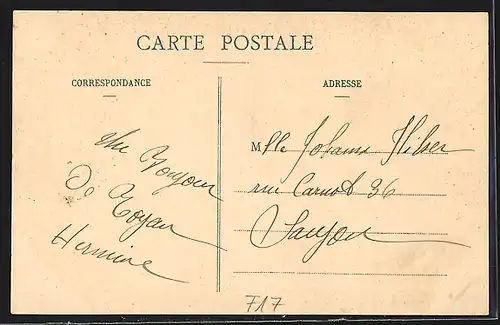 CARTE POSTALE
CORRESPONDANCE
ADRESSE
Un Bonjour
De Royan
Hermine
Mlle Johanna Hilser
rue Carnot 36
Saujon
717